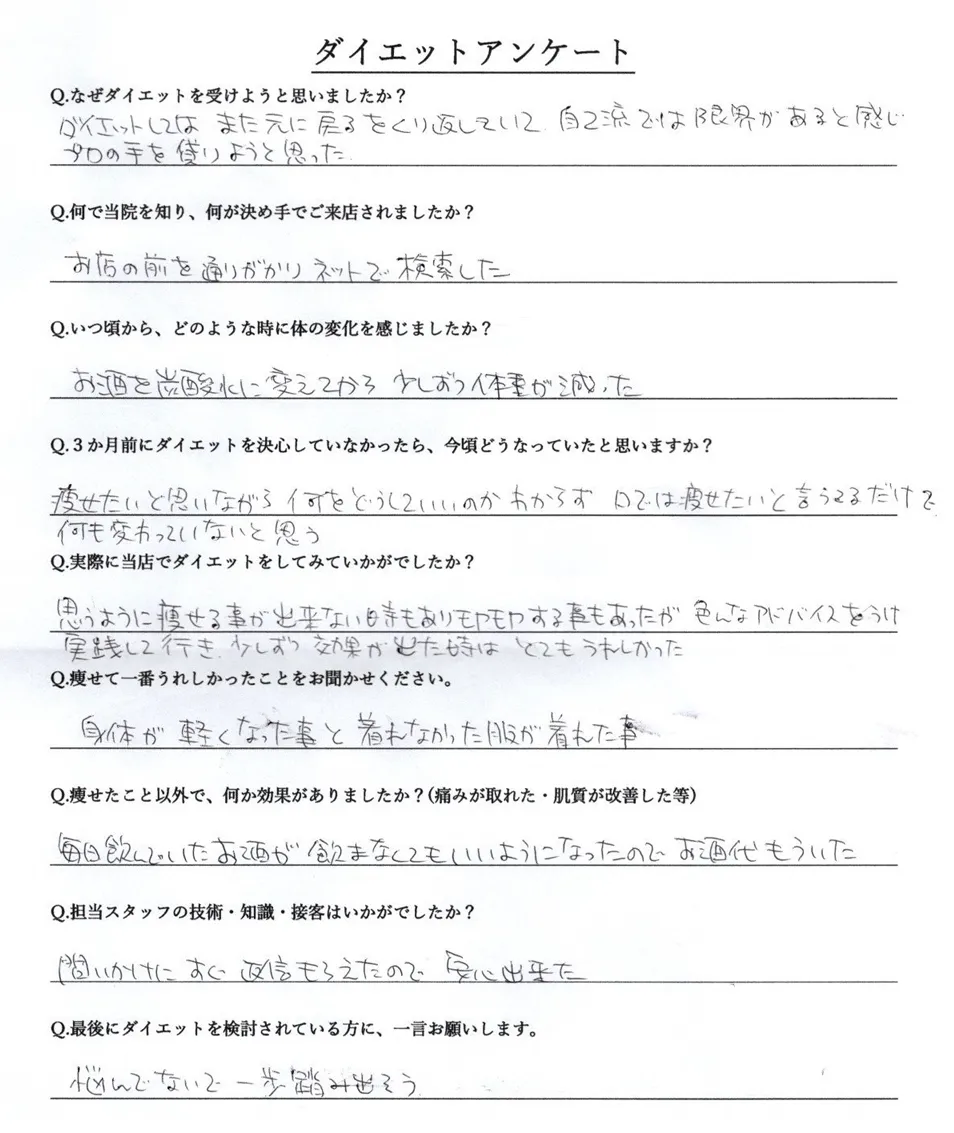 ダイエットアンケート
Q.なぜダイエットを受けようと思いましたか?
ダイエットしては また元に戻るをくり返していて 自己流では限界があると感じ
プロの手を借りようと思った
Q.何で当院を知り、何が決め手でご来店されましたか?
お店の前を通りがかり ネットで検索した
Q.いつ頃から、どのような時に体の変化を感じましたか?
お酒を炭酸水に変えてから 少しずつ体重が減った
Q.3か月前にダイエットを決心していなかったら、今頃どうなっていたと思いますか?
痩せたいと思いながら 何をどうしていいのか わからず 口では痩せたいと言うてるだけで
何も変わっていないと思う
Q.実際に当店でダイエットをしてみていかがでしたか?
思うように痩せる事が出来ない時もありモヤモヤする事もあったが 色んなアドバイスをうけ
実践して行き 少しずつ 効果が出た時は とてもうれしかった
Q.痩せて一番うれしかったことをお聞かせください。
身体が 軽くなった事と 着れなかった服が着れた事
Q.痩せたこと以外で、何か効果がありましたか?(痛みが取れた・肌質が改善した等)
毎日飲んでいたお酒が 飲まなくてもいいようになったので お酒代もういた
Q.担当スタッフの技術・知識・接客はいかがでしたか?
問いかけに すぐ 返信もらえたので 安心出来た
Q.最後にダイエットを検討されている方に、一言お願いします。
悩んでないで 一歩踏み出そう